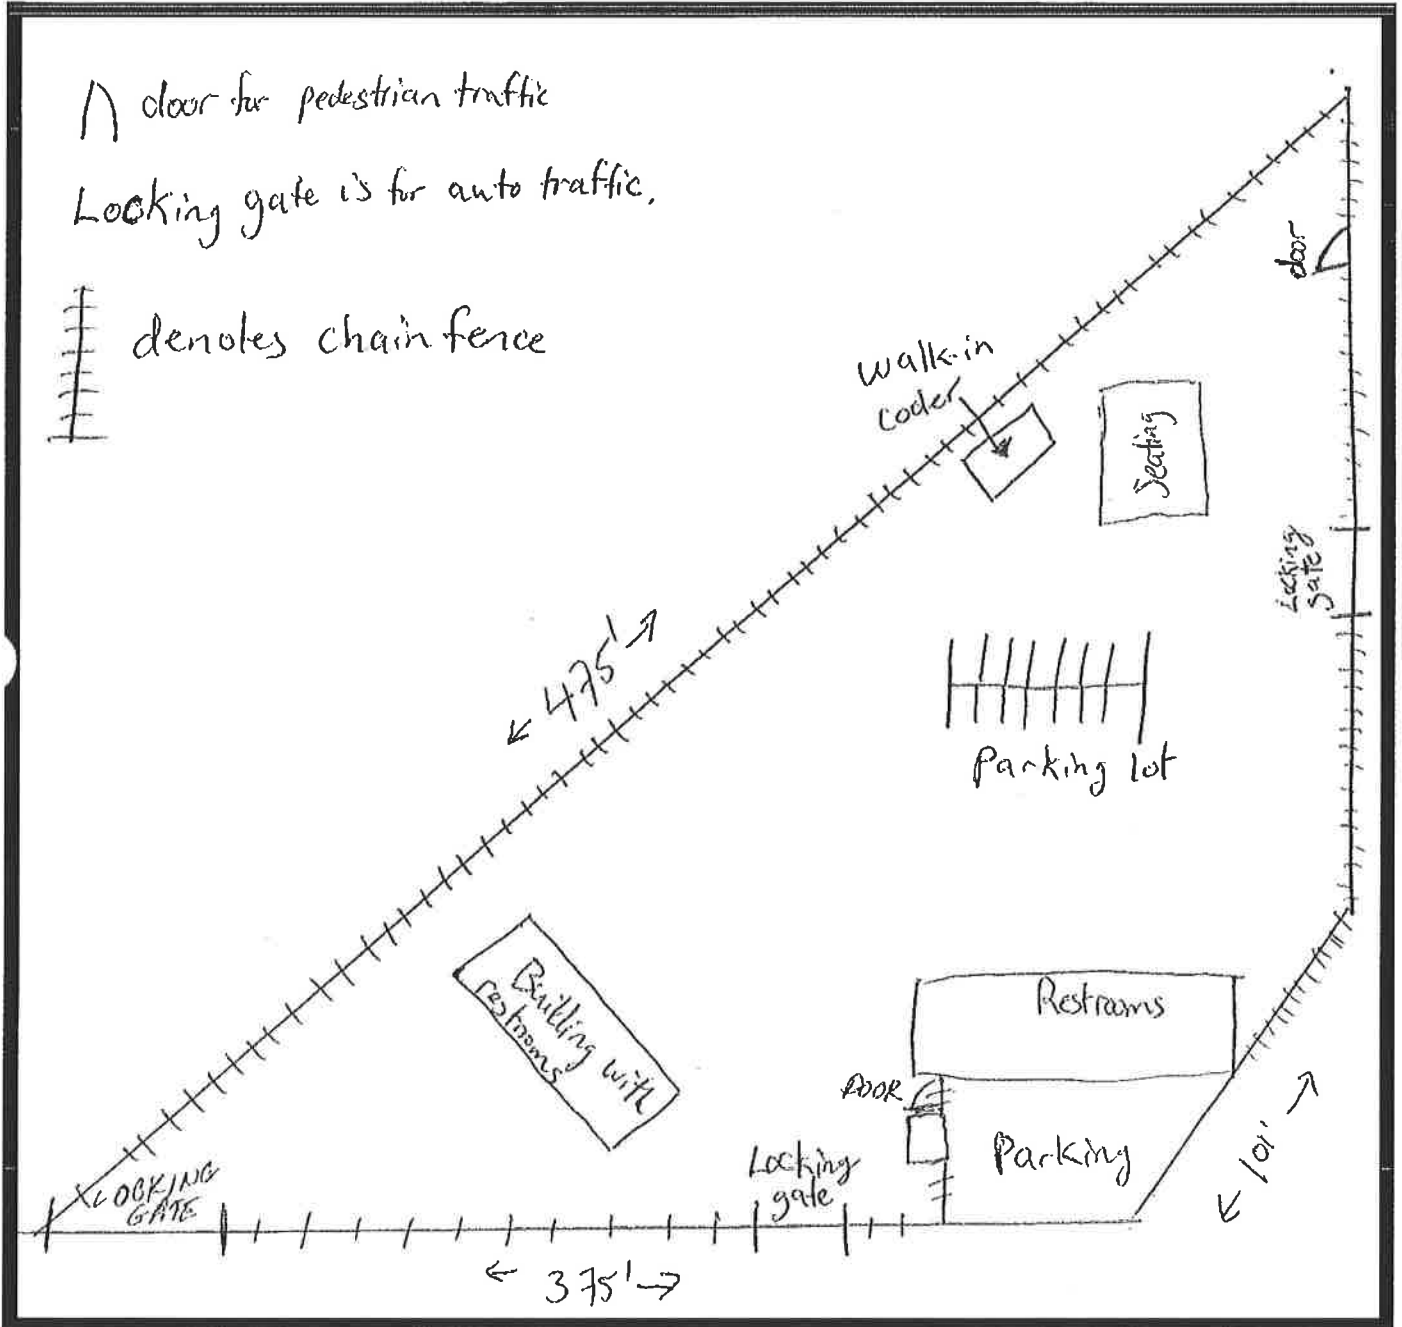 door for pedestrian traffic
Locking gate is for auto traffic.
denotes chain fence
door
walk-in
cooler
Seating
Locking
gate
475'
Parking lot
Building with
restrooms
Restrooms
DOOR
Parking
101'
LOCKING
GATE
Locking
gate
375'